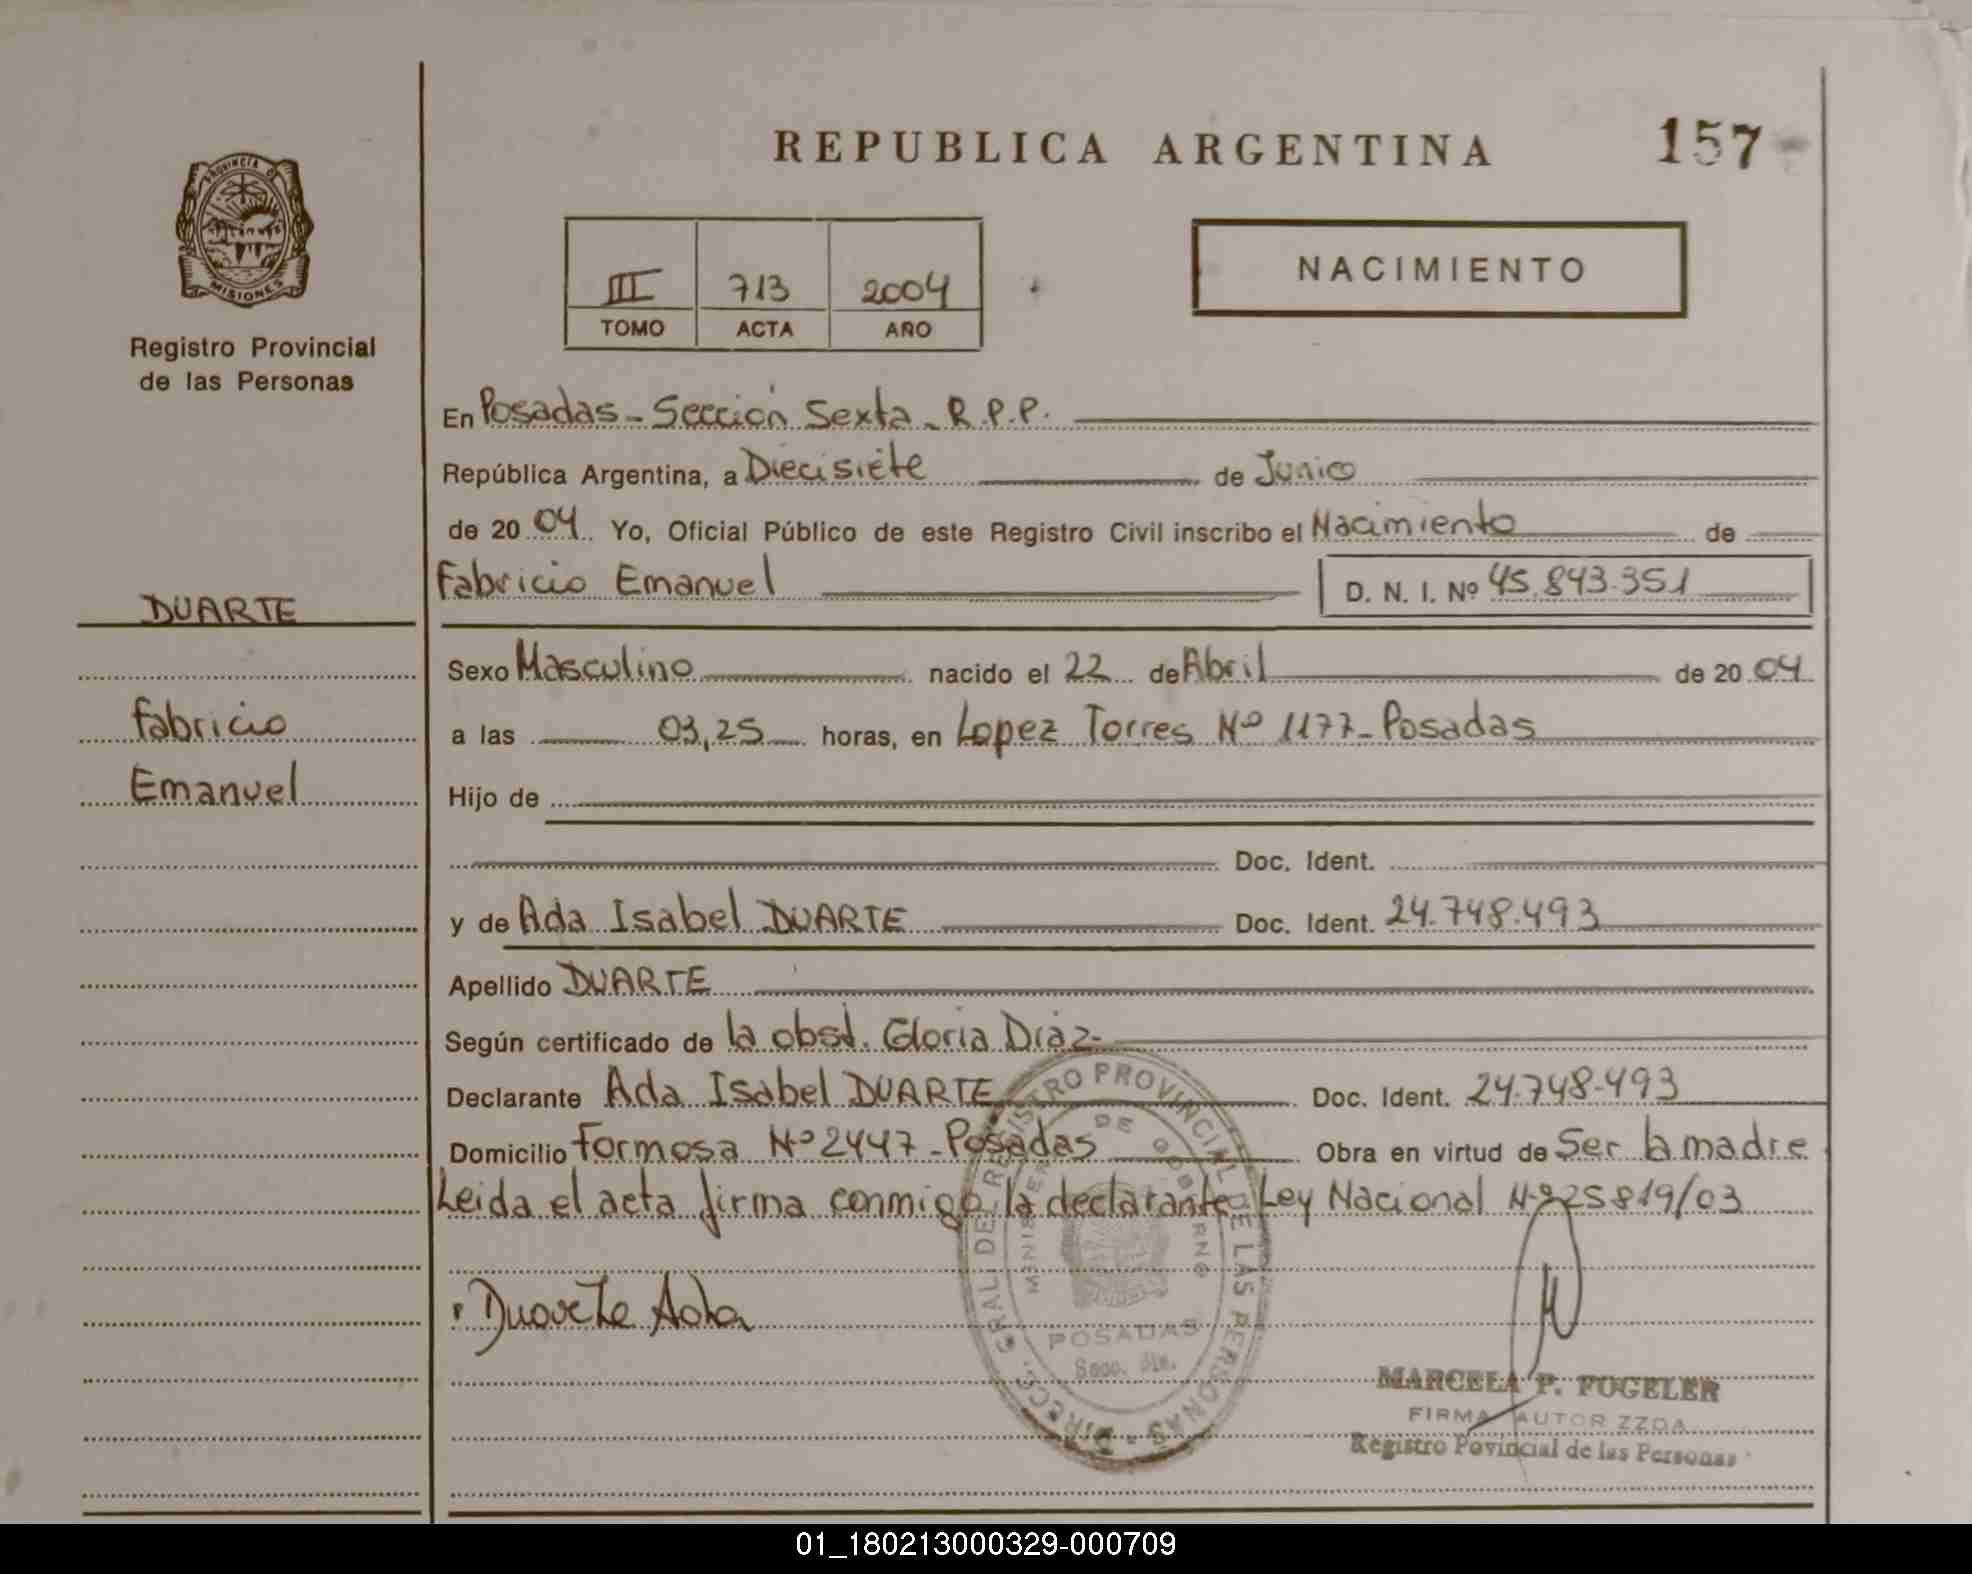 REPUBLICA ARGENTINA
157
PROVINCIA DE
MISIONES
Registro Provincial
de las Personas
III 713 2004
TOMO ACTA AÑO
NACIMIENTO
En Posadas - Sección Sexta - R.P.P.
República Argentina, a Diecisiete de Junio
de 2004 Yo, Oficial Público de este Registro Civil inscribo el Nacimiento de
Fabricio Emanuel D. N. I. Nº 45.843.351
DUARTE
Fabricio
Emanuel
Sexo Masculino nacido el 22 de Abril de 2004
a las 03,25 horas, en Lopez Torres Nº 1177 - Posadas
Hijo de
Doc. Ident.
y de Ada Isabel DUARTE Doc. Ident. 24.748.493
Apellido DUARTE
Según certificado de la obst. Gloria Díaz-
Declarante Ada Isabel DUARTE Doc. Ident. 24.748.493
Domicilio Formosa Nº 2447 - Posadas Obra en virtud de Ser la madre
Leida el acta firma conmigo la declarante Ley Nacional Nº 25819/03
Duarte Ada
DIRECC. GRAL. DE REGISTRO PROVINCIAL DE LAS PERSONAS
POSADAS
MARCELA P. FOGELER
FIRMA AUTORIZZDA
Registro Povincial de las Personas
01_180213000329-000709